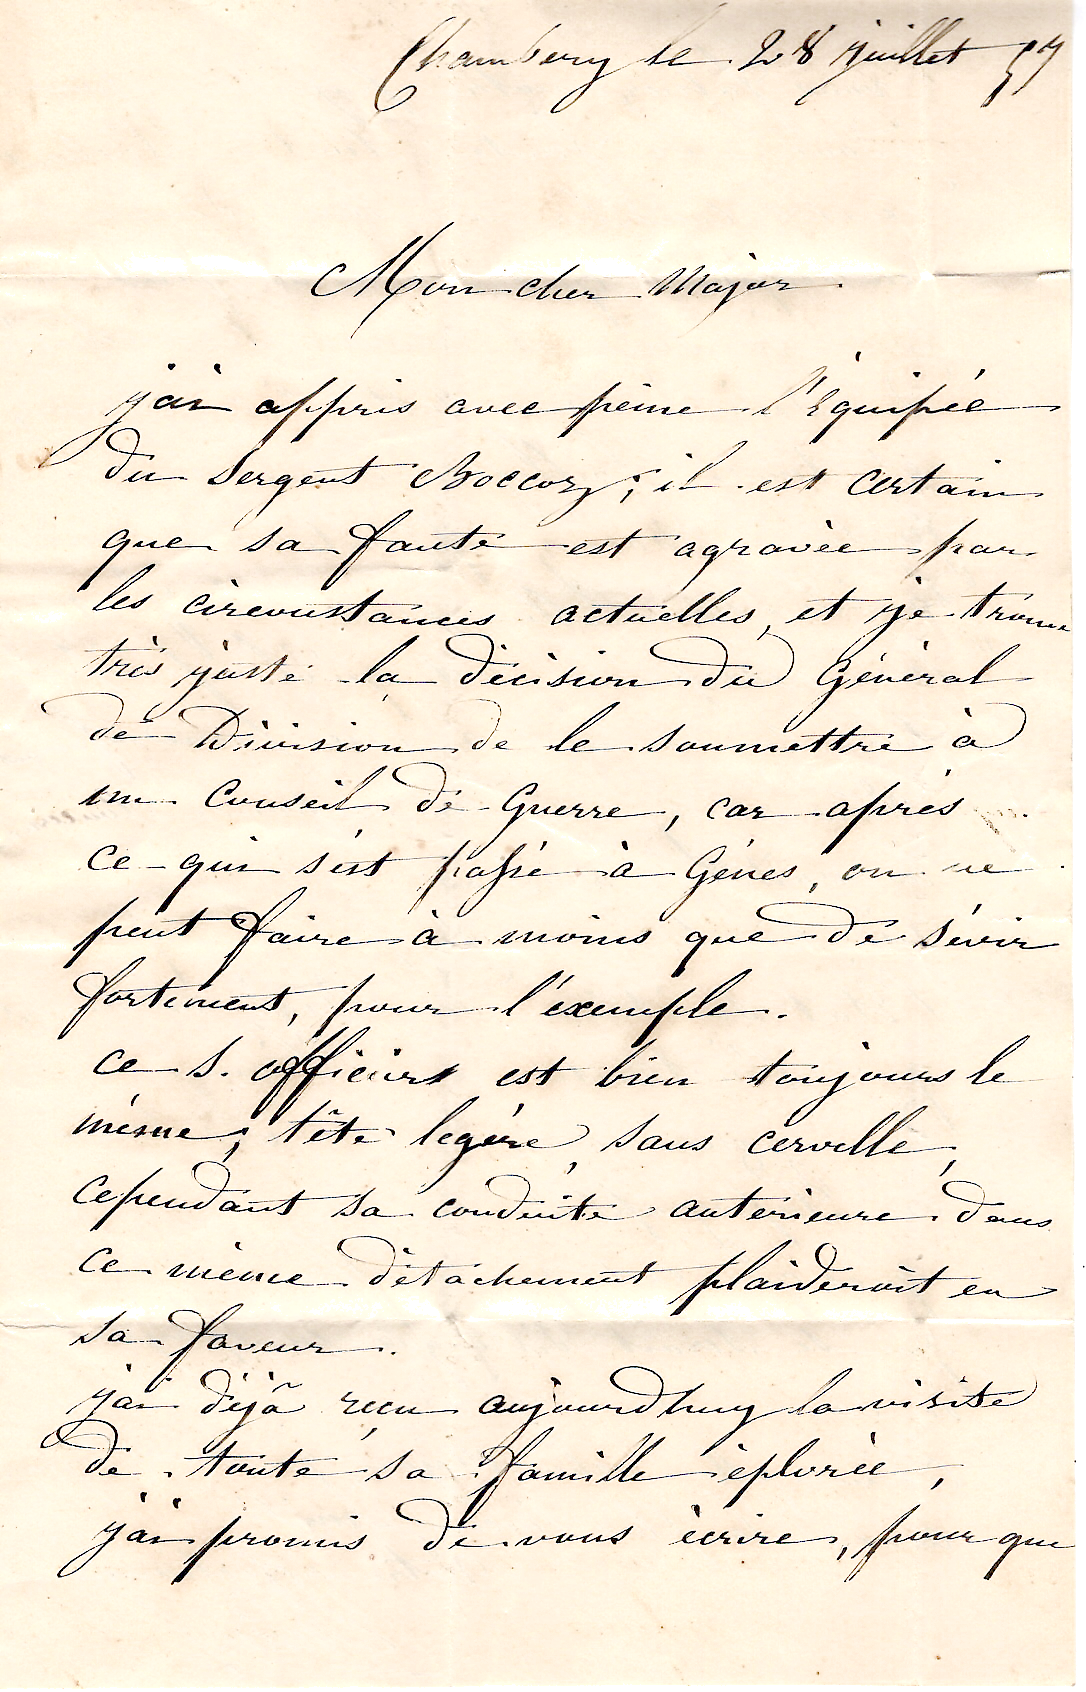 Chambery le 28 juillet 57
Mon cher Major
j'ai appris avec peine l'Equipée
du Sergent Boccoz; il est certain
que sa faute est agravée par
les circonstances actuelles, et je trouve
très juste la décision du Général
de Division de le soumettre à
un Conseil de Guerre, car après
ce qui s'est passé à Gênes, on ne
peut faire à moins que de sévir
fortement, pour l'exemple.
ce S. officier est bien toujours le
même, tête legère, sans cervelle,
cependant sa conduite anterieure dans
ce même détachement plaideroit en
sa faveur.
j'ai déjà reçu aujourdhuy la visite
de toute sa famille éplorée,
j'ai promis de vous écrire, pour que